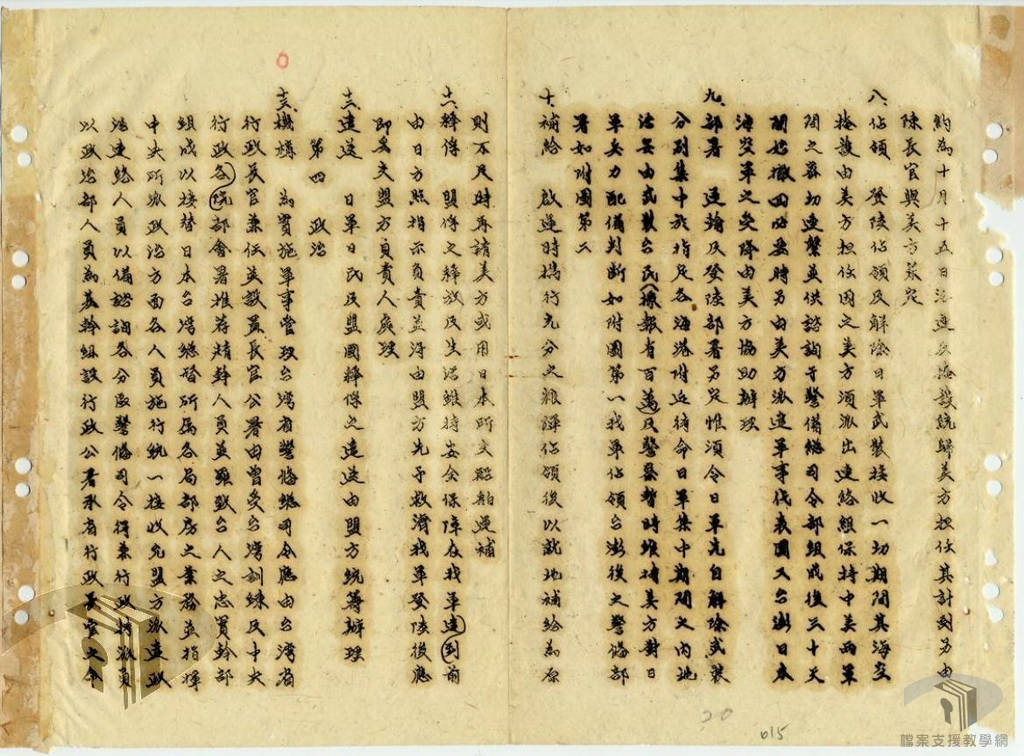 約為十月十五日海運及掩護統歸美方担任其計劃另由
陳長官與美方商定
八、佔領 登陸佔領及解除日軍武裝接收一切期間其海空
掩護由美方担任因之美方須派出連絡組保持中美兩軍
間之密切連繫並供諮詢于警備總司令部組成後三十天
開始撤回必要時另由美方派遣軍事代表團又台澎日本
海空軍之受降由美方協助辦理
九、部署 運輸及登陸部署另定惟須令日軍先自解除武裝
分別集中於指定各海港附近待命日軍集中期間之內地
治安由武裝台民(據報有百萬)及警察暫時維持美方對日
軍兵力配備判斷如附圖第一我軍佔領台澎後之警備部
署如附圖第二
十、補給 啟運時攜行充分之糧彈佔領後以就地補給為原
則不足時再請美方或用日本所交船舶運補
十一、釋俘 盟俘之釋放及生活維持安全保障在我軍達到前
由日方照指示負責並得由盟方先予救濟我軍登陸後應
即為交盟方負責人處理
十二、遣送 日軍日民及盟國釋俘之遣送由盟方統籌辦理
第四 政治
十三、機構 為實施軍事管理台灣省警備總司令應由台灣省
行政長官兼任並設置長官公署由曾受台灣訓練及中央
行政各院部會署推荐精幹人員並羅致台人之忠實幹部
組成以接替日本台灣總督所屬各局部房之業務並指揮
中央所派政治方面各人員施行統一接收免盟方派遣政
治連絡人員以備諮詢各分區警備司令得兼行政特派員
以政治部人員為基幹組設行政公署承省行政長官之命
20
015
檔案支援教學網